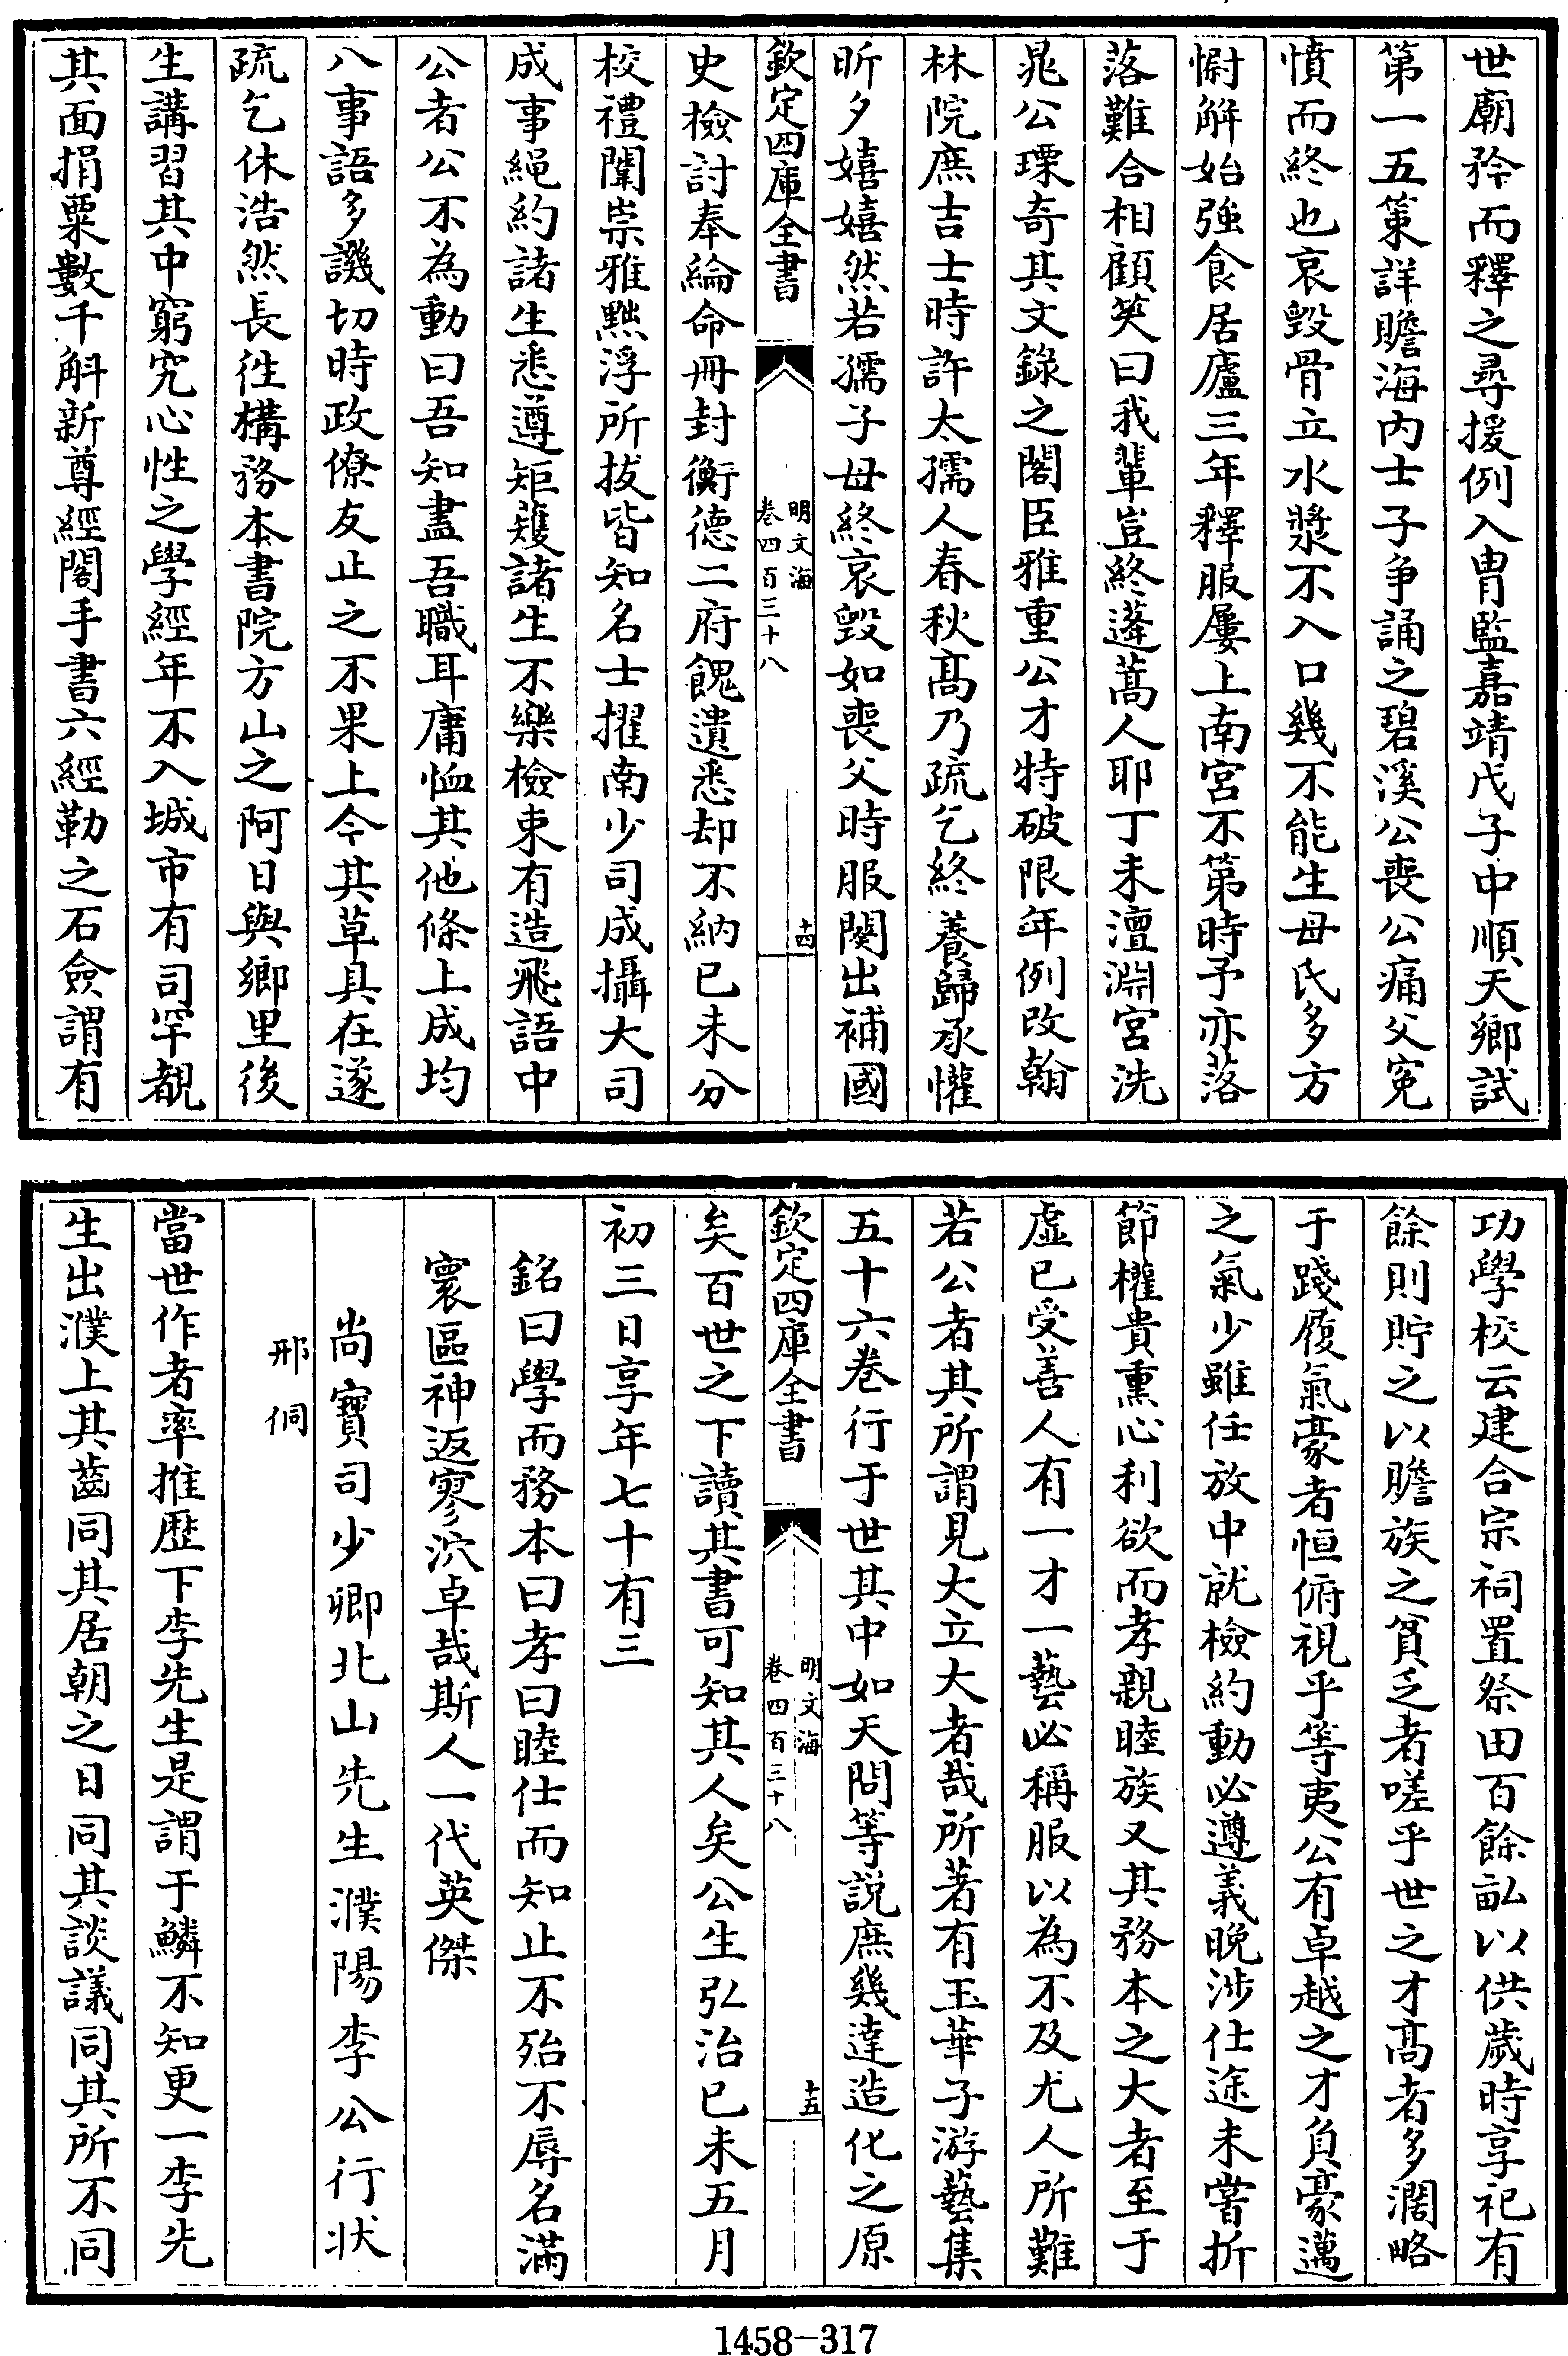 世廟矜而釋之尋援例入胄監嘉靖戊子中順天鄉試
第一五策詳贍海内士子争誦之碧溪公喪公痛父寃
憤而終也哀毀骨立水漿不入口幾不能生母氏多方
慰解始強食居廬三年釋服屢上南宮不第時予亦落
落難合相顧笑曰我輩豈終蓬蒿人耶丁未澶淵宮洗
晁公瑮奇其文錄之閣臣雅重公才特破限年例改翰
林院庶吉士時許太孺人春秋髙乃疏乞終養歸承懽
昕夕嬉嬉然若孺子母終哀毀如喪父時服闋出補國
欽定四庫全書
明文海
卷四百三十八
十四
史檢討奉綸命冊封衡德二府餽遺悉却不納已未分
校禮闈崇雅黜浮所拔皆知名士擢南少司成攝大司
成事繩約諸生悉遵矩矱諸生不樂檢束有造飛語中
公者公不為動曰吾知盡吾職耳庸恤其他條上成均
八事語多譏切時政僚友止之不果上今其草具在遂
疏乞休浩然長徃構務本書院方山之阿日與鄉里後
生講習其中窮究心性之學經年不入城市有司罕覩
其面捐粟數千斛新尊經閣手書六經勒之石僉謂有
功學校云建合宗祠置祭田百餘畆以供歲時享祀有
餘則貯之以贍族之貧乏者嗟乎世之才髙者多濶略
于踐履氣豪者恒俯視乎等夷公有卓越之才負豪邁
之氣少雖任放中就檢約動必遵義晚涉仕途未甞折
節權貴熏心利欲而孝親睦族又其務本之大者至于
虛已受善人有一才一藝必稱服以為不及尤人所難
若公者其所謂見大立大者哉所著有玉華子游藝集
五十六卷行于世其中如天問等説庶幾達造化之原
欽定四庫全書
明文海
卷四百三十八
十五
矣百世之下讀其書可知其人矣公生弘治已未五月
初三日享年七十有三
銘曰學而務本曰孝曰睦仕而知止不殆不辱名滿
寰區神返寥泬卓哉斯人一代英傑
尚寶司少卿北山先生濮陽李公行状
邢侗
當世作者率推歴下李先生是謂于鱗不知更一李先
生出濮上其齒同其居朝之日同其談議同其所不同
1458-317